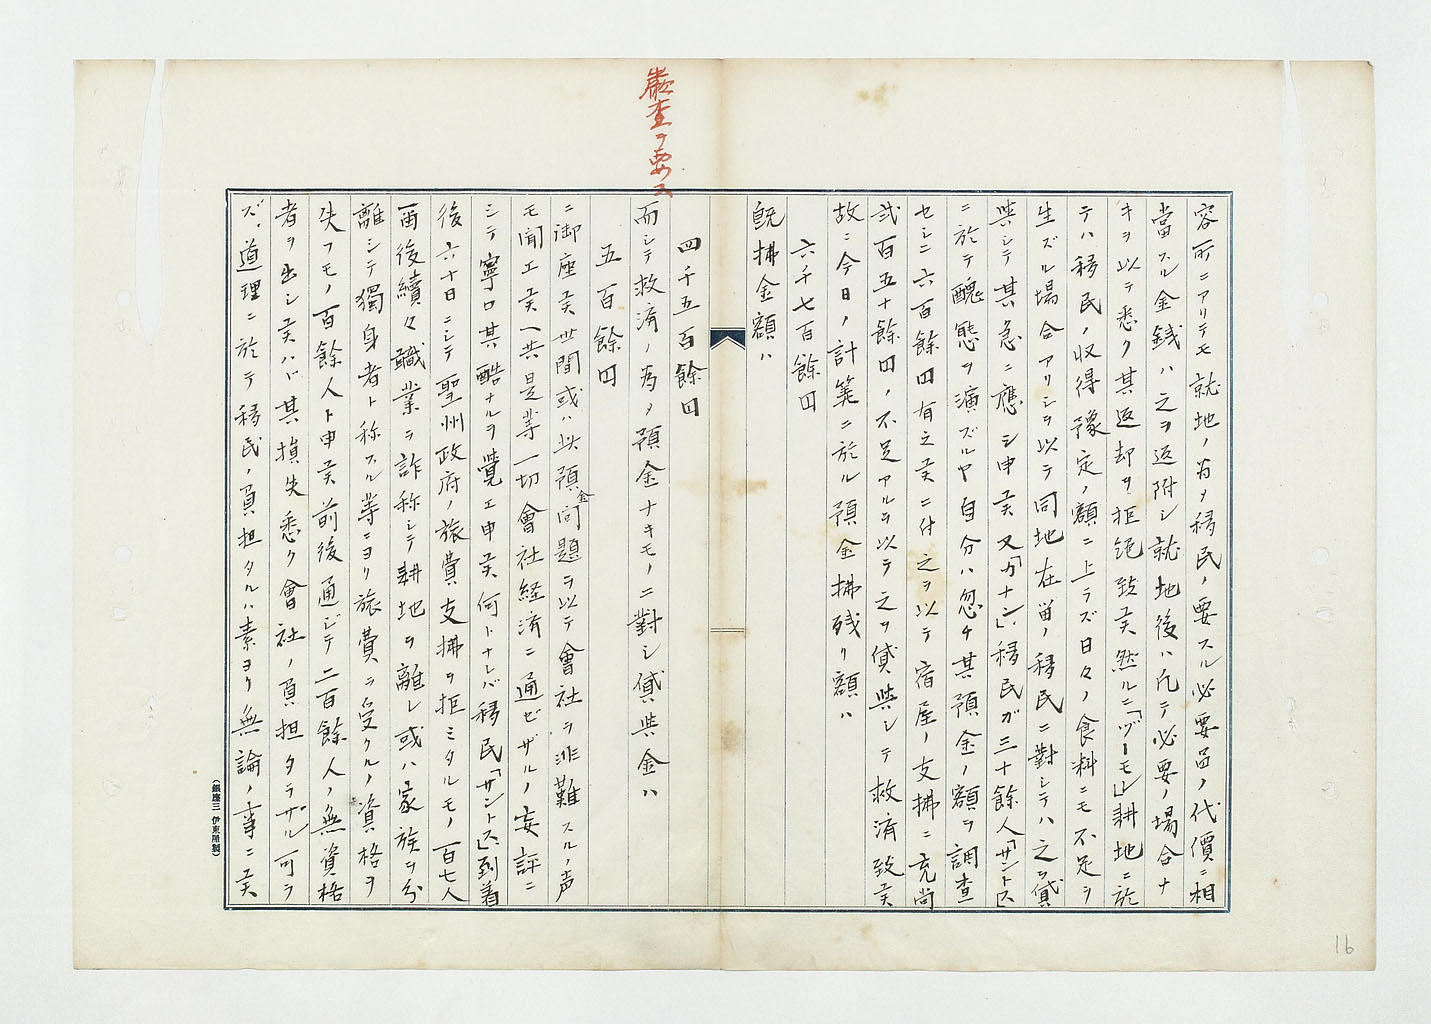 嚴査ヲ要ス
容所ニアリテモ就地ノ為メ移民ノ要スル必要品ノ代價ニ相
當スル金銭ハ之ヲ返附シ就地後ハ凡テ必要ノ場合ナ
キヲ以テ悉ク其返却ヲ拒絶致シ候然ルニ「ヅーモン」耕地ニ於
テハ移民ノ収得豫定ノ額ニ上ラズ日々ノ食料ニモ不足ヲ
生ズル場合アリシヲ以テ同地在留ノ移民ニ對シテハ之ヲ貸
與シテ其急ニ應シ申候又「カナン」移民ガ三十餘人「サントス」
ニ於テ醜態ヲ演ズルヤ自分ハ忽チ其預金ノ額ヲ調査
セシニ六百餘円有之候ニ付之ヲ以テ宿屋ノ支拂ニ充尚
弐百五十餘円ノ不足アルヲ以テ之ヲ貸與シテ救済致候
故ニ今日ノ計筭ニ於ル預金拂残リ額ハ
六千七百餘円
既拂金額ハ
四千五百餘円
而シテ救済ノ為メ預金ナキモノニ對シ貸與金ハ
五百餘円
ニ御座候世間或ハ此預金問題ヲ以テ會社ヲ非難スルノ声
モ聞エ候ヘ共是等一切會社経済ニ通ゼザルノ妄評ニ
シテ寧ロ其酷ナルヲ覺エ申候何トナレバ移民「サントス」到着
後六十日ニシテ聖州政府ノ旅費支拂ヲ拒ミタルモノ百七人
爾後續々職業ヲ詐称シテ耕地ヲ離レ或ハ家族ヲ分
離シテ獨身者ト称スル等ニヨリ旅費ヲ受クルノ資格ヲ
失フモノ百餘人ト申候前後通ジテ二百餘人ノ無資格
者ヲ出シ候ハバ其損失悉ク會社ノ負担タラザル可ラ
ズ、道理ニ於テ移民ノ負担タルハ素ヨリ無論ノ事ニ候
(銀座三 伊東屋製)
16